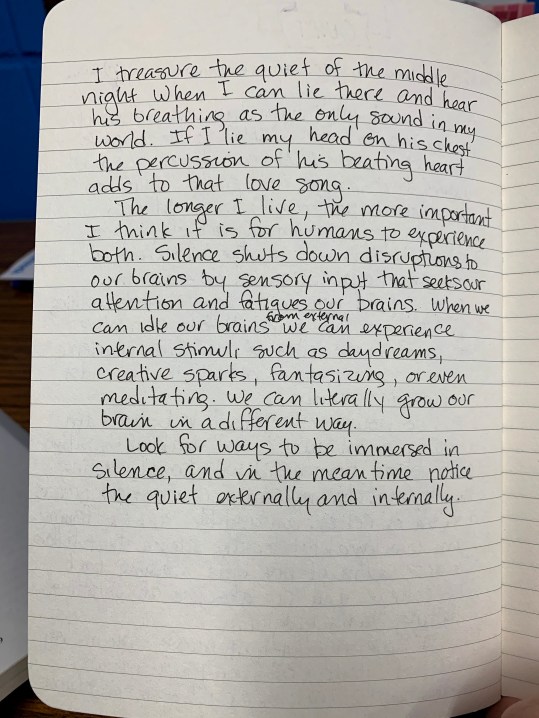 I treasure the quiet of the middle
night when I can lie there and hear
his breathing as the only sound in my
world. If I lie my head on his chest
the percussion of his beating heart
adds to that love song.
The longer I live, the more important
I think it is for humans to experience
both. Silence shuts down disruptions to
our brains by sensory input that seeks our
attention and fatigues our brains. When we
from external
can idle our brains we can experience
internal stimuli such as daydreams,
creative sparks, fantasizing, or even
meditating. We can literally grow our
brain in a different way.
Look for ways to be immersed in
silence, and in the meantime notice
the quiet externally and internally.